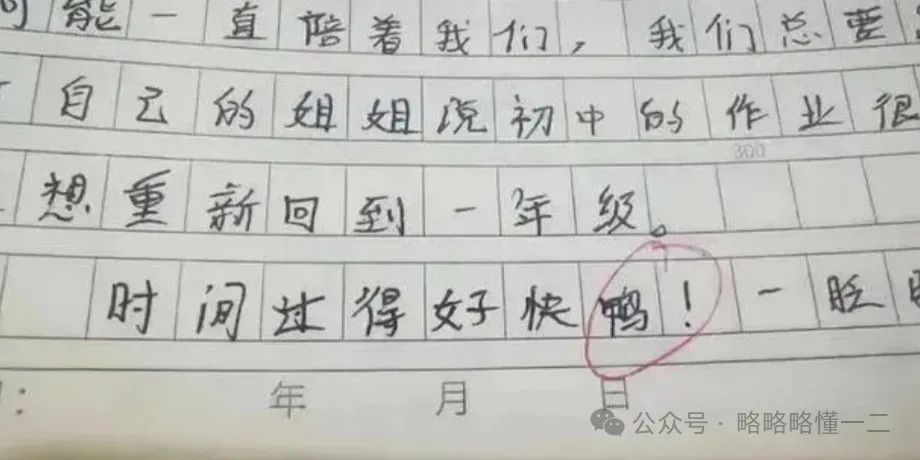 能一直陪着我们，我们总要
自己的姐姐说初中的作业很
300
想重新回到一年级。
时间过得好快鸭！一眨
：年月日
公众号·略略略懂一二